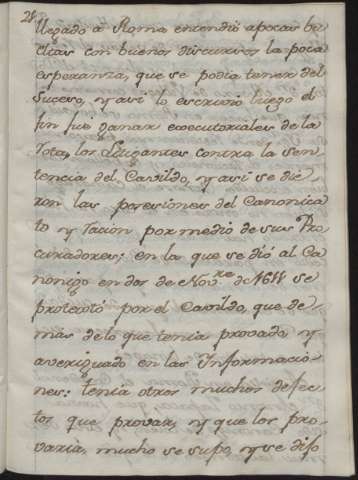 28
llegado à Roma entendió apocas bu
eltas con buenos discursos la poca
esperanza, que se podia tener del
Suceso, y asi lo escrivio luego el
fin fue ganar executoriales de la
Rota, los Litigantes contra la Sen
tencia del Cavildo, y asi se die
ron las posesiones del Canonica
to y Racion por medio de sus Pro
curadores; en la que se dió al Ca
nonigo en dos de Nov.re de 1611 se
protextó por el Cavildo, que de
mas de lo que tenia provado, y
averiguado en las Informacio
nes: tenia otros muchos defec
tos que provar, y que los pro
varia, mucho se supo, y se dijo